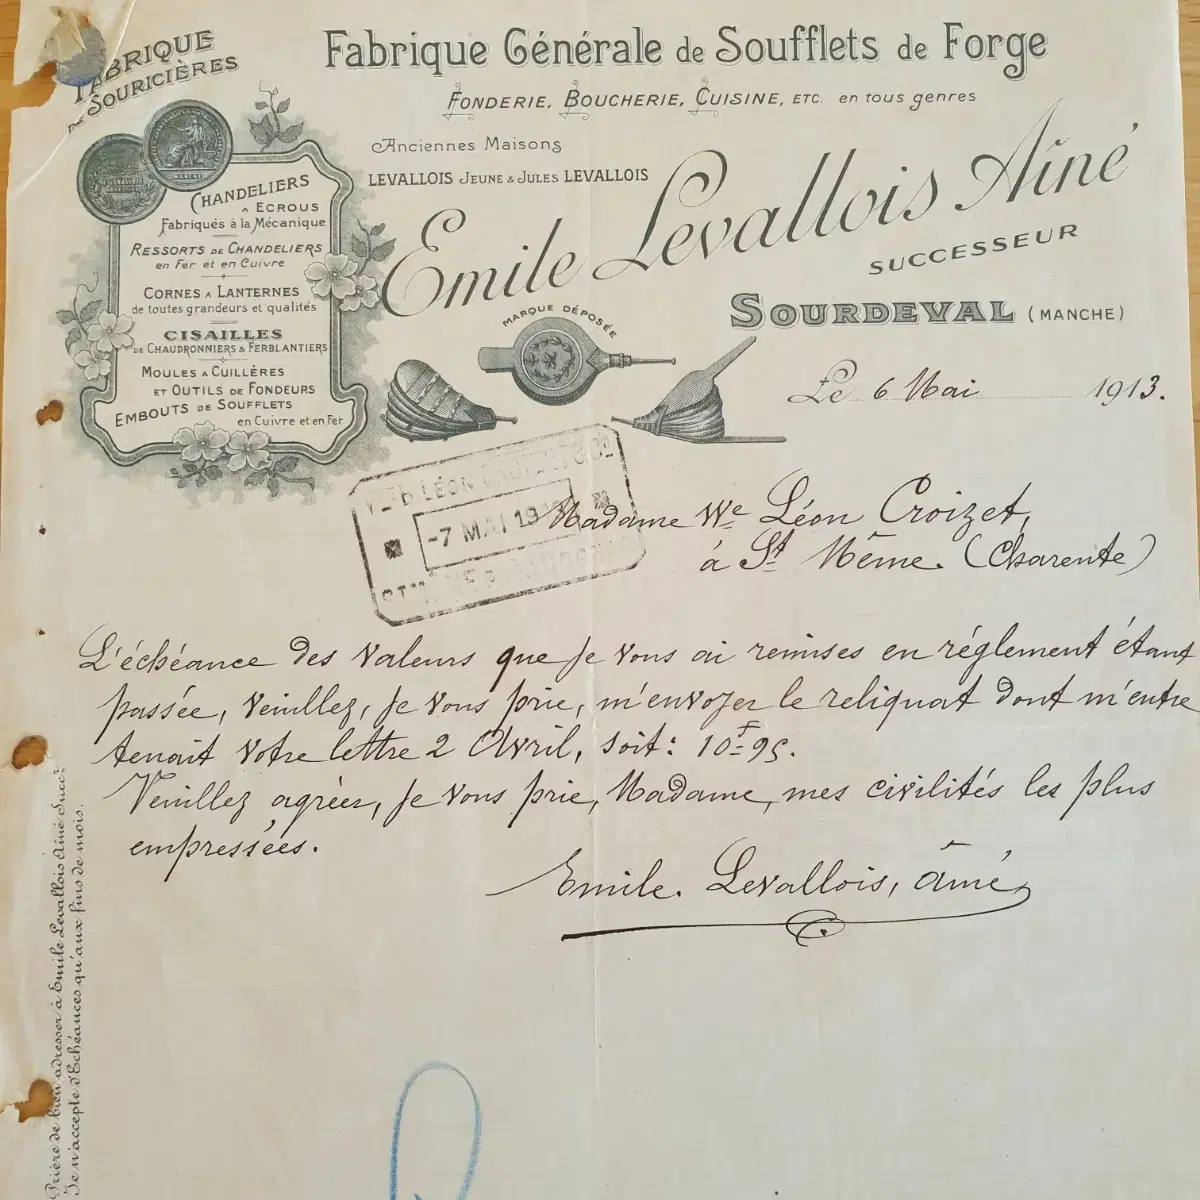 FABRIQUE
DE SOURICIÈRES
Fabrique Générale de Soufflets de Forge
FONDERIE, BOUCHERIE, CUISINE, ETC. en tous genres
Anciennes Maisons
LEVALLOIS JEUNE & JULES LEVALLOIS
Emile Levallois Aîné
SUCCESSEUR
SOURDEVAL (MANCHE)
CHANDELIERS
A ECROUS
Fabriqués à la Mécanique
RESSORTS DE CHANDELIERS
en Fer et en Cuivre
CORNES A LANTERNES
de toutes grandeurs et qualités
CISAILLES
DE CHAUDRONNIERS & FERBLANTIERS
MOULES A CUILLÈRES
ET OUTILS DE FONDEURS
EMBOUTS DE SOUFFLETS
en Cuivre et en Fer
MARQUE DÉPOSÉE
Le 6 Mai 1913.
LÉON
-7 MAI 19
Madame Ve Léon Croizet,
à St Même. (Charente)
L'échéance des valeurs que je vous ai remises en réglement étant
passée, veuillez, je vous prie, m'envoyer le reliquat dont m'entre
tenait votre lettre 2 Avril, soit: 10f=95.
Veuillez agréer, je vous prie, Madame, mes civilités les plus
empressées.
Emile. Levallois, aîné
Prière de bien adresser à Emile Levallois Aîné Succr
Je n'accepte d'Echéances qu'aux fins de mois.